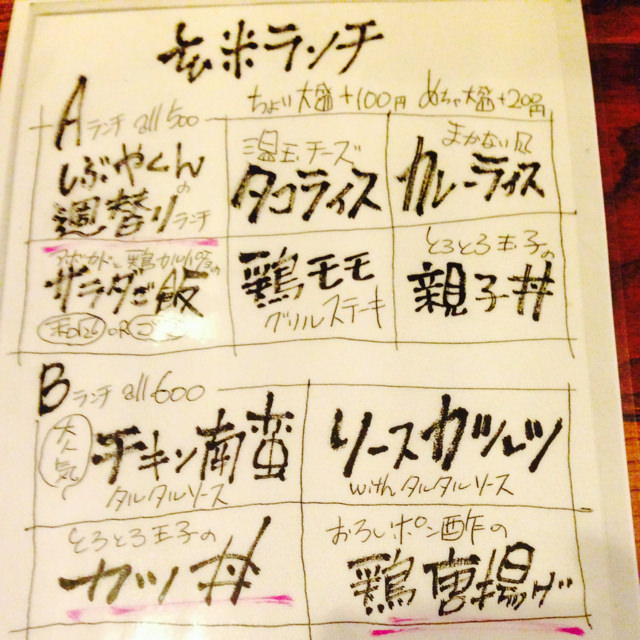 玄米ランチ
ちょい大盛+100円 めちゃ大盛+200円
Aランチ all 500
しぶやくんの
週替りランチ
温玉チーズ
タコライス
まかない風
カレーライス
サラダご飯
鶏モモ
グリルステーキ
とろとろ玉子の
親子丼
Bランチ all 600
人気
チキン南蛮
タルタルソース
ソースカツレツ
with タルタルソース
とろとろ玉子の
カツ丼
おろしポン酢の
鶏唐揚げ